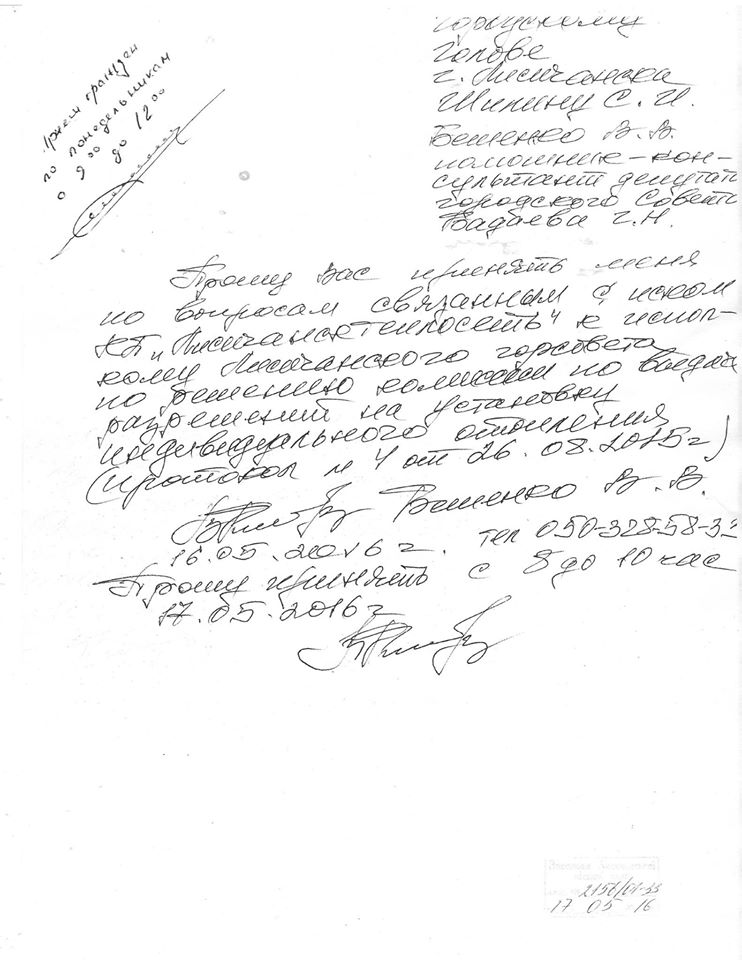 Прием граждан
по понедельникам
с 9 00 до 12 00
городскому
Голове
г. Лисичанска
Шилину С. И.
Бешенко В. В.
помощник-кон-
сультант депутат
городского Совета
Бадаева Г.Н.
Прошу Вас принять меня
по вопросам связанным с иском
КП "Лисичансктеплосеть" к испол-
кому Лисичанского горсовета
по решению комиссии по выдаче
разрешений на установку
индивидуального отопления
(протокол № 4 от 26.08.2015г)
Бешенко В. В.
16.05.2016г. тел 050-328-58-33
Прошу принять с 8 до 10 час
17.05.2016г
2156/01-33
17 05 16